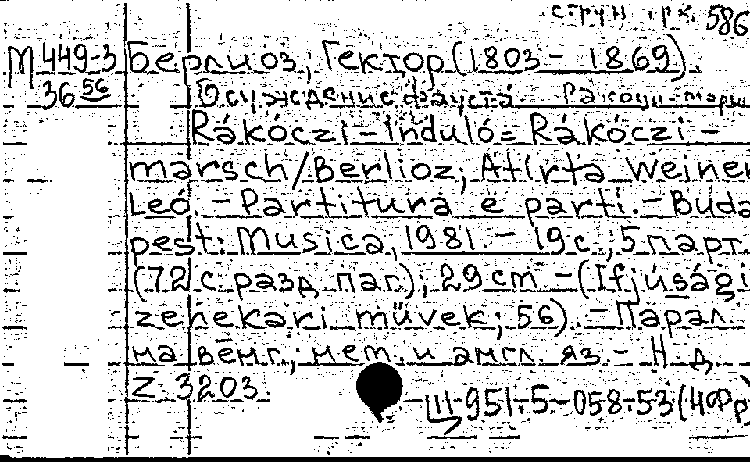 струн. орк. 586
М 449-3 Берлиоз, Гектор (1803 – 1869).
36 56 Осуждение Фауста. Ракоци-марш
Rákóczi-induló = Rákóczi-
marsch / Berlioz; Átírta Weiner
Leó. – Partitura e parti. – Buda-
pest: Musica, 1981. – 19 с., 5 парт.
(72 с. разд. паг.); 29 cm – (Ifjúsági
zenekari művek; 56). – Парал.
на венг., нем. и англ. яз. – Н. д.
Z. 3203.
Ш 951.5-058.53(4Фр)